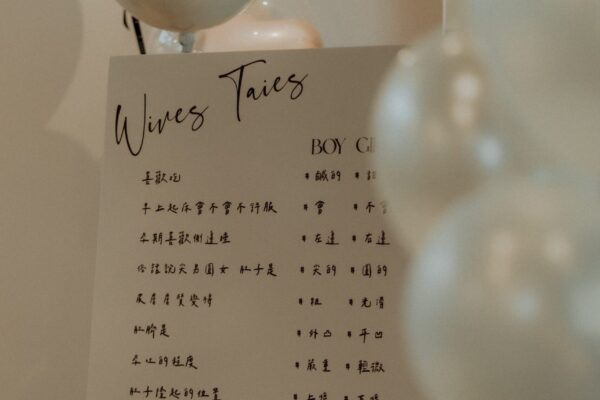 Wives Taies
BOY G
喜歡吃 # 鹹的 #
早上起床會不會不舒服 # 會 # 不會
孕期喜歡側邊睡 # 左邊 # 右邊
俗話說尖男圓女 肚子是 # 尖的 # 圓的
皮膚膚質變得 # 粗 # 光滑
肚臍是 # 外凸 # 平凹
孕吐的程度 # 嚴重 # 輕微
肚子隆起的位置 #